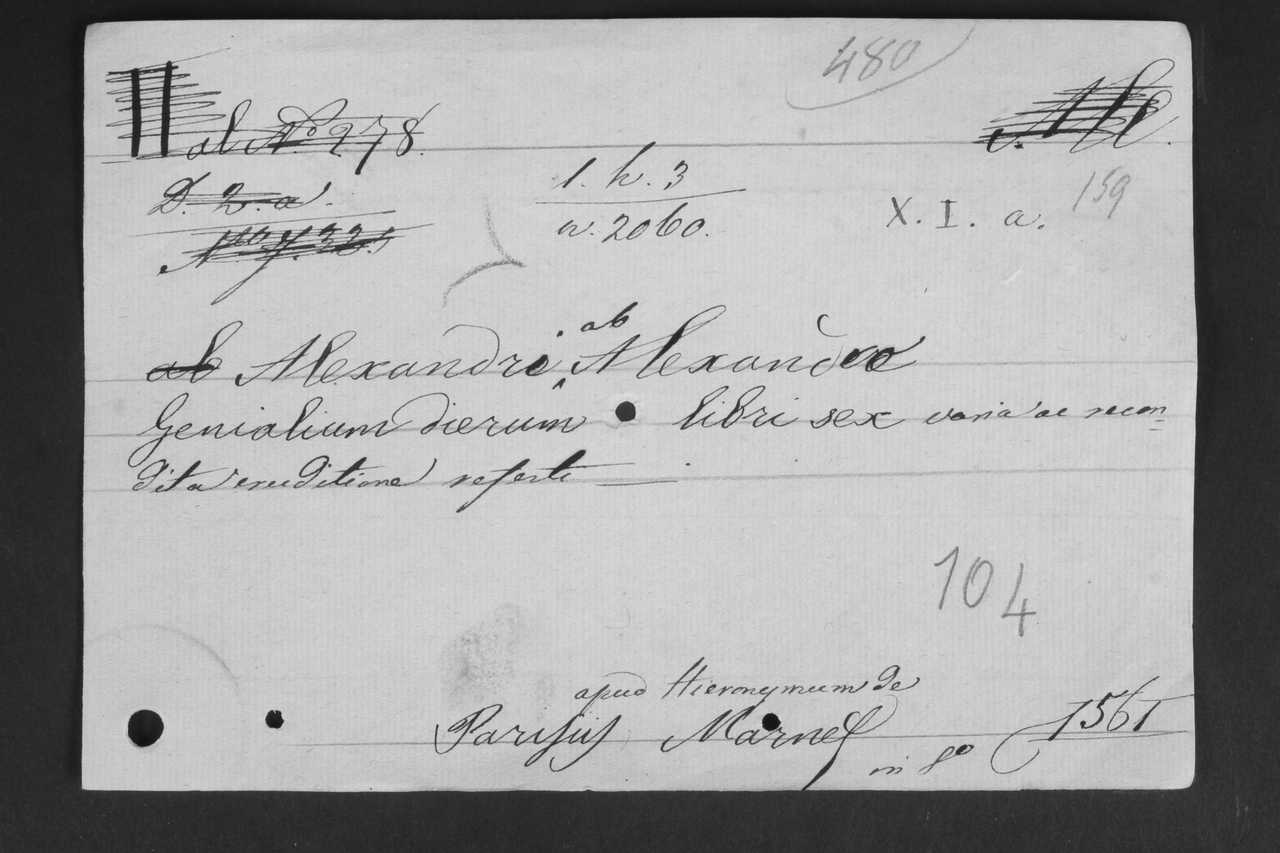 480
II al No 278.
D. 2. a.
1. h. 3
n. 2060.
X. I. a.
159
ab Alexandri ab Alexandro
Genialium dierum libri sex varia ac recon=
dita eruditione referti
104
apud Hieronymum de
Parisiis Marnef
in 8o
1561